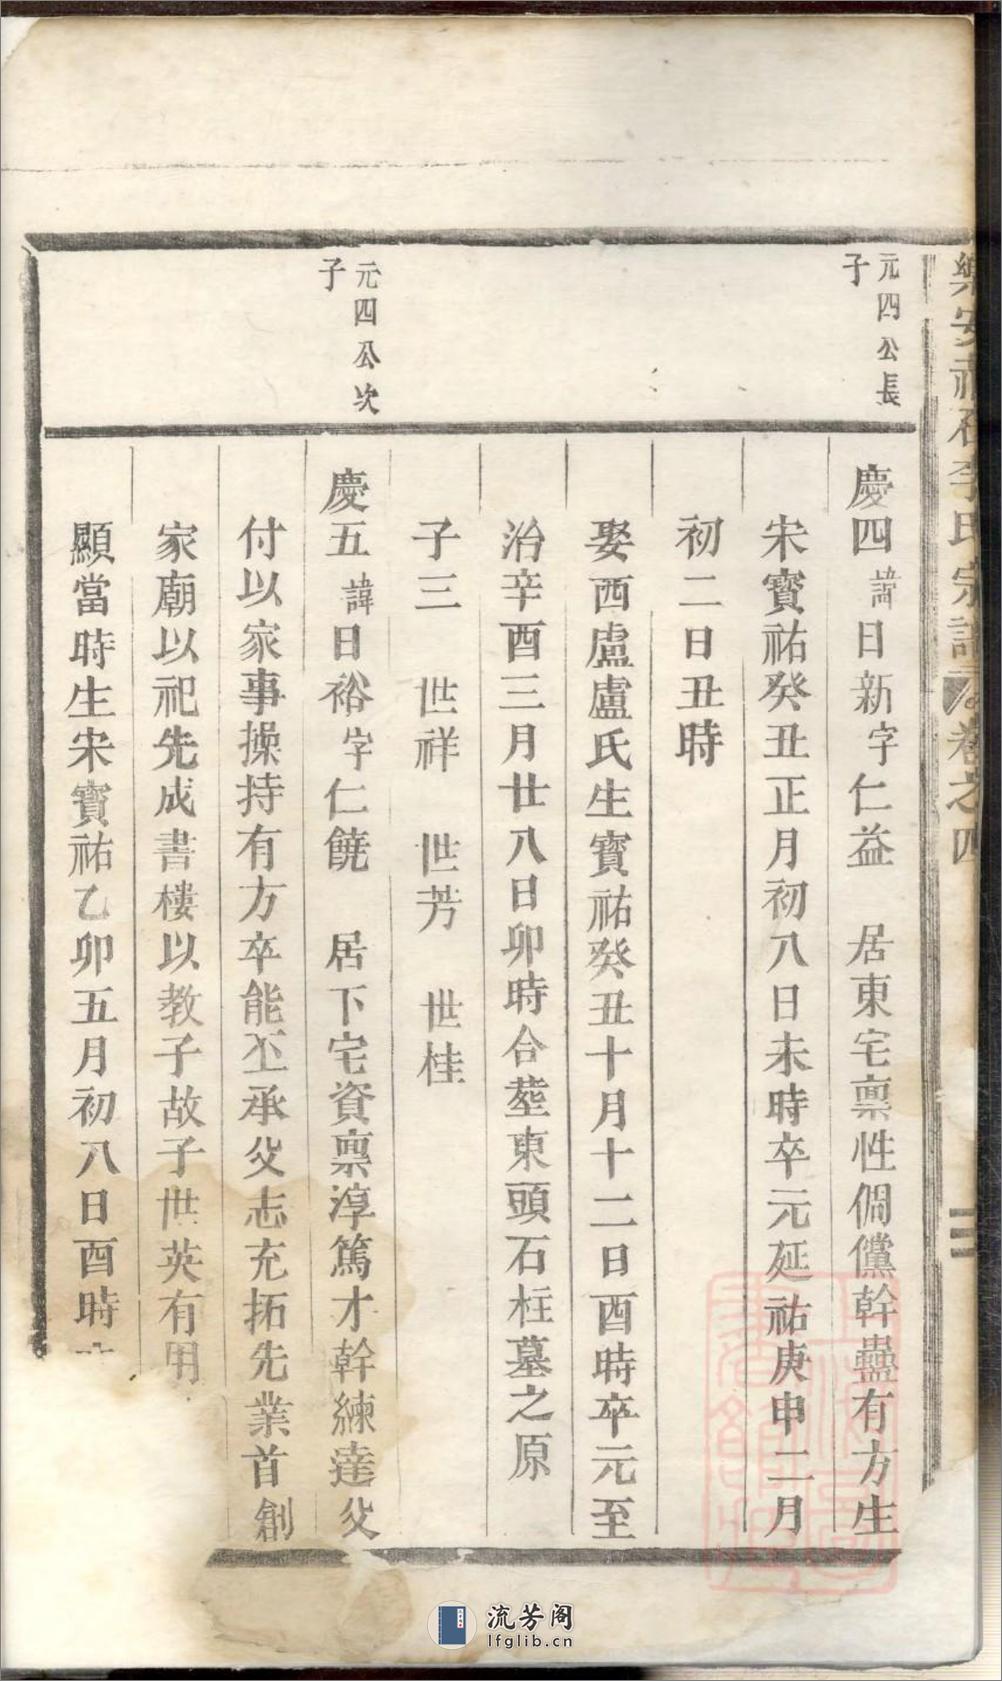 元四公長
子
慶四諱日新字仁益　居東宅禀性倜儻幹蠱有方生
宋寳祐癸丑正月初八日未時卒元延祐庚申二月
初二日丑時
娶西盧盧氏生寳祐癸丑十月十二日酉時卒元至
治辛酉三月廿八日卯時合塟東頭石柱墓之原
子三　世祥　世芳　世桂
元四公次
子
慶五諱日裕字仁饒　居下宅資禀淳篤才幹練達父
付以家事操持有方卒能丕承父志充拓先業首創
家廟以祀先成書樓以教子故子世英有用
顯當時生宋寳祐乙卯五月初八日酉時
李氏宗譜
卷之四
二
流芳阁
lfglib.cn